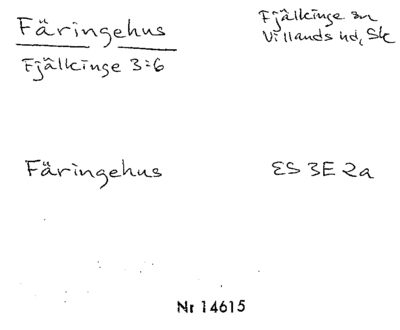 Färingehus
Fjälkinge 3:6
Fjälkinge sn
Villands hd, Sk
Färingehus
ES 3E 2a
Nr 14615